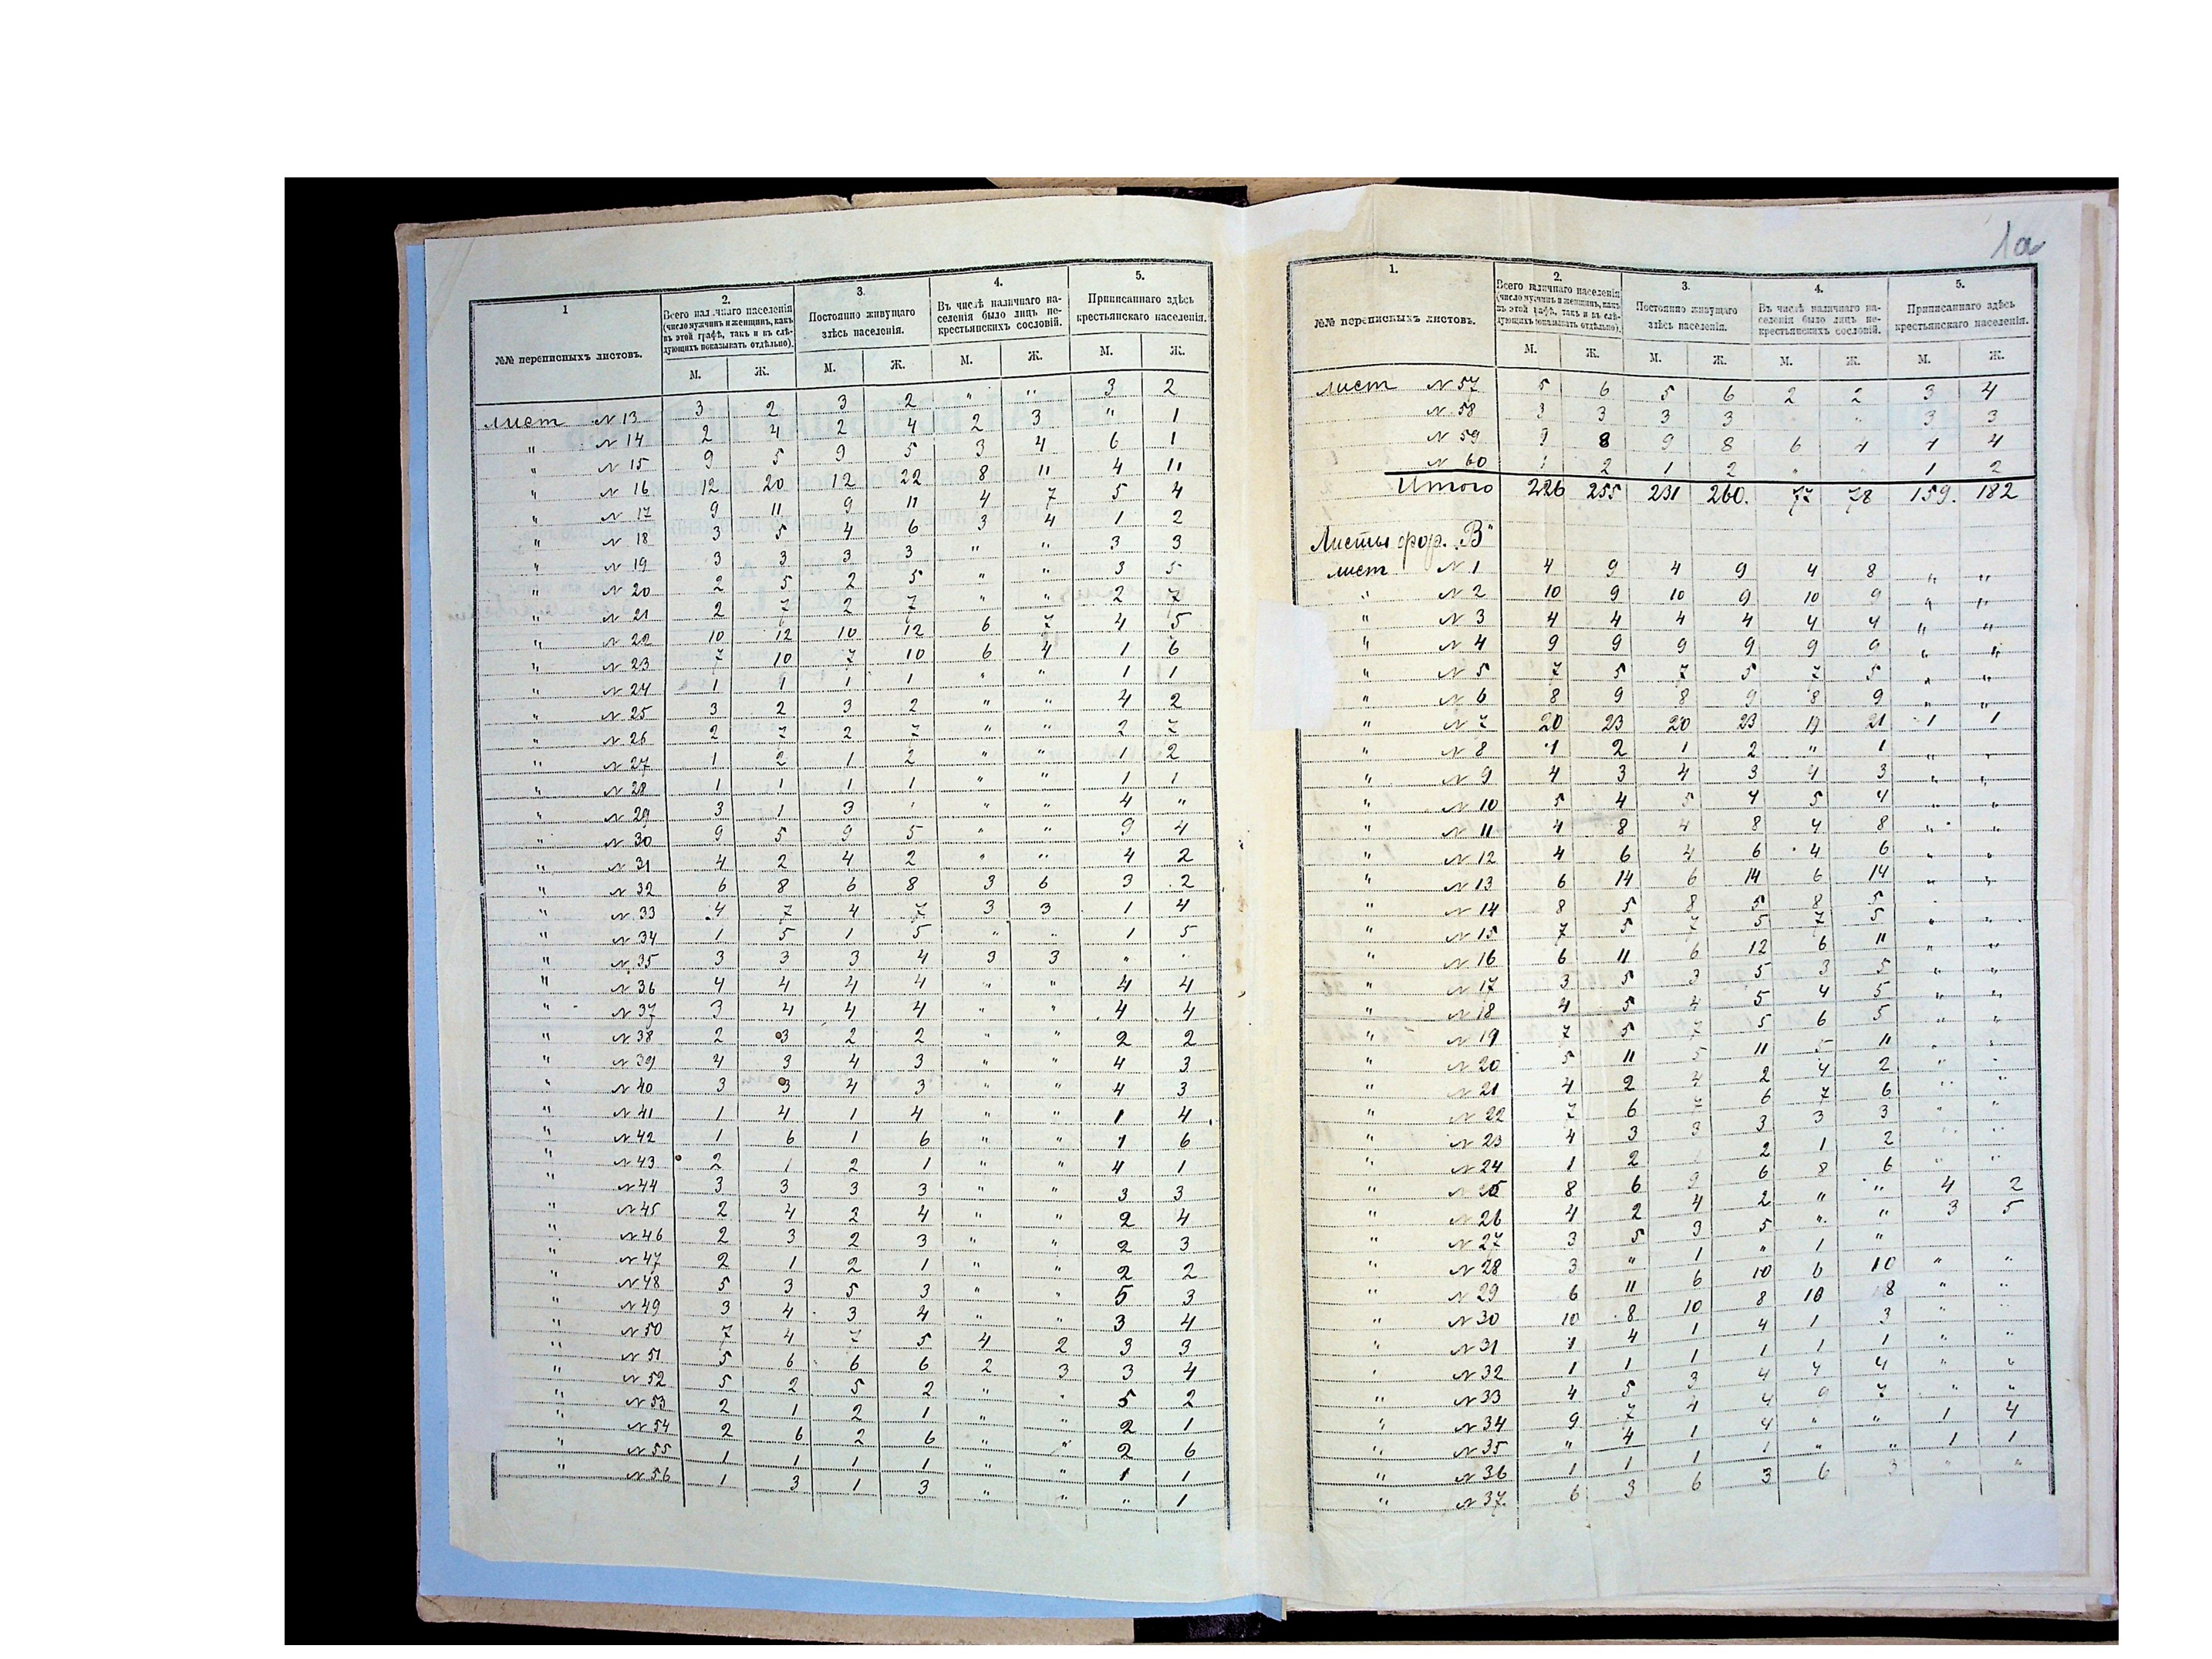 1
2.
3.
4.
5.
№№ переписныхъ листовъ.
Всего наличнаго населенія (число мужчинъ и женщинъ, какъ въ этой графѣ, такъ и въ слѣдующихъ показывать отдѣльно).
Постоянно живущаго здѣсь населенія.
Въ числѣ наличнаго населенія было лицъ некрестьянскихъ сословій.
Приписаннаго здѣсь крестьянскаго населенія.
М. Ж. М. Ж. М. Ж. М. Ж.
Лист №13 3 2 3 2 " " 3 2
" №14 2 4 2 4 2 3 " 1
" №15 9 5 9 5 3 4 6 1
" №16 12 20 12 22 8 11 4 11
" №17 9 11 9 11 4 7 5 4
" №18 3 5 4 6 3 4 1 2
" №19 3 3 3 3 " " 3 3
" №20 2 5 2 5 " " 3 5
" №21 2 7 2 7 " " 2 7
" №22 10 12 10 12 6 7 4 5
" №23 7 10 7 10 6 4 1 6
" №24 1 1 1 1 " " 1 1
" №25 3 2 3 2 " " 4 2
" №26 2 7 2 7 " " 2 7
" №27 1 2 1 2 " " 1 2
" №28 1 1 1 1 " " 1 1
" №29 3 1 3 " " 4 "
" №30 9 5 9 5 " " 9 4
" №31 4 2 4 2 " " 4 2
" №32 6 8 6 8 3 6 3 2
" №33 4 7 4 7 3 3 1 4
" №34 1 5 1 5 " " 1 5
" №35 3 3 3 4 3 3 " "
" №36 4 4 4 4 " " 4 4
" №37 3 4 4 4 " " 4 4
" №38 2 3 2 2 " " 2 2
" №39 4 3 4 3 " " 4 3
" №40 3 3 4 3 " " 4 3
" №41 1 4 1 4 " " 1 4
" №42 1 6 1 6 " " 1 6
" №43 2 1 2 1 " " 4 1
" №44 3 3 3 3 " " 3 3
" №45 2 4 2 4 " " 2 4
" №46 2 3 2 3 " " 2 3
" №47 2 1 2 1 " " 2 2
" №48 5 3 5 3 " " 5 3
" №49 3 4 3 4 " " 3 4
" №50 7 4 7 5 4 2 3 3
" №51 5 6 6 6 2 3 3 4
" №52 5 2 5 2 " " 5 2
" №53 2 1 2 1 " " 2 1
" №54 2 6 2 6 " " 2 6
" №55 1 1 1 1 " " 1 1
" №56 1 3 1 3 " " " 1
1а
1.
2.
3.
4.
5.
№№ переписныхъ листовъ.
Всего наличнаго населенія (число мужчинъ и женщинъ, какъ въ этой графѣ, такъ и въ слѣдующихъ показывать отдѣльно).
Постоянно живущаго здѣсь населенія.
Въ числѣ наличнаго населенія было лицъ некрестьянскихъ сословій.
Приписаннаго здѣсь крестьянскаго населенія.
М. Ж. М. Ж. М. Ж. М. Ж.
Лист №57 5 6 5 6 2 2 3 4
№58 3 3 3 3 " " 3 3
№59 9 8 9 8 6 4 4 4
№60 1 2 1 2 " " 1 2
Итого 226 255 231 260. 77 78 159. 182
Листы фор. „В"
лист №1 4 9 4 9 4 8 " "
" №2 10 9 10 9 10 9 " "
" №3 4 4 4 4 4 4 " "
" №4 9 9 9 9 9 9 " "
" №5 7 5 7 5 7 5 " "
" №6 8 9 8 9 8 9 " "
" №7 20 23 20 23 19 21 1 1
" №8 1 2 1 2 " 1 " "
" №9 4 3 4 3 4 3 " "
" №10 5 4 5 4 5 4 " "
" №11 4 8 4 8 4 8 " "
" №12 4 6 4 6 4 6 " "
" №13 6 14 6 14 6 14 " "
" №14 8 5 8 5 8 5
" №15 7 5 7 5 7 5 " "
" №16 6 11 6 12 6 11 " "
" №17 3 5 3 5 3 5 " "
" №18 4 5 4 5 4 5 " "
" №19 7 5 7 5 6 5 " "
" №20 5 11 5 11 5 11 " "
" №21 4 2 4 2 4 2 " "
" №22 7 6 7 6 7 6 " "
" №23 4 3 3 3 3 3 " "
" №24 1 2 1 2 1 2 " "
" №25 8 6 9 6 8 6 " "
" №26 4 2 4 2 " " 4 2
" №27 3 5 3 5 " " 3 5
" №28 3 " 1 " 1 "
" №29 6 11 6 10 6 10 " "
" №30 10 8 10 8 10 8 " "
" №31 1 4 1 4 1 3 " "
" №32 1 1 1 1 1 1 " "
" №33 4 5 3 4 4 4 " "
" №34 9 7 4 4 9 7 " "
" №35 " 4 1 4 " " 1 4
" №36 1 1 1 1 " " 1 1
" №37. 6 3 6 3 6 3 " "